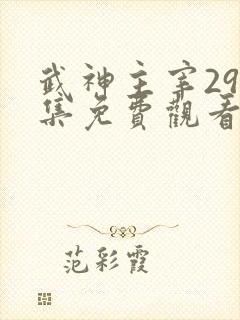 武神主宰29
集免費觀看
范彩霞